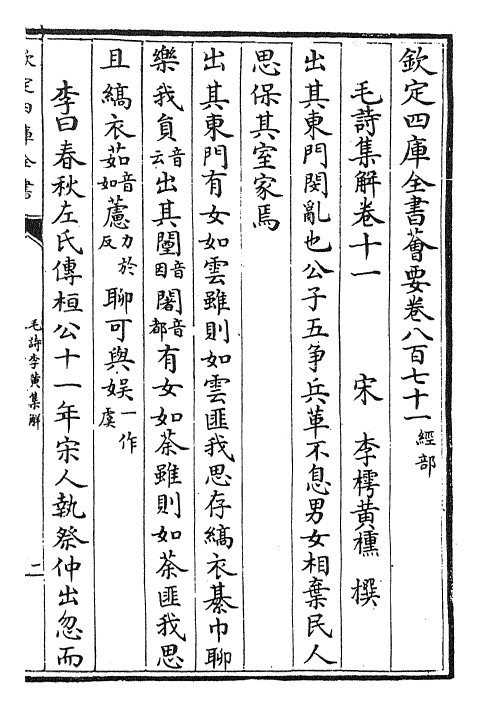 欽定四庫全書薈要卷八百七十一 經部
毛詩集解卷十一 宋 李樗黃櫄 撰
出其東門閔亂也公子五爭兵革不息男女相棄民人
思保其室家焉
出其東門有女如雲雖則如雲匪我思存縞衣綦巾聊
樂我員音云出其闉音因闍音都有女如荼雖則如荼匪我思
且縞衣茹音如藘力於反聊可與娱一作虞
李曰春秋左氏傳桓公十一年宋人執祭仲出忽而
欽定四庫全書
毛詩李黃集解
二